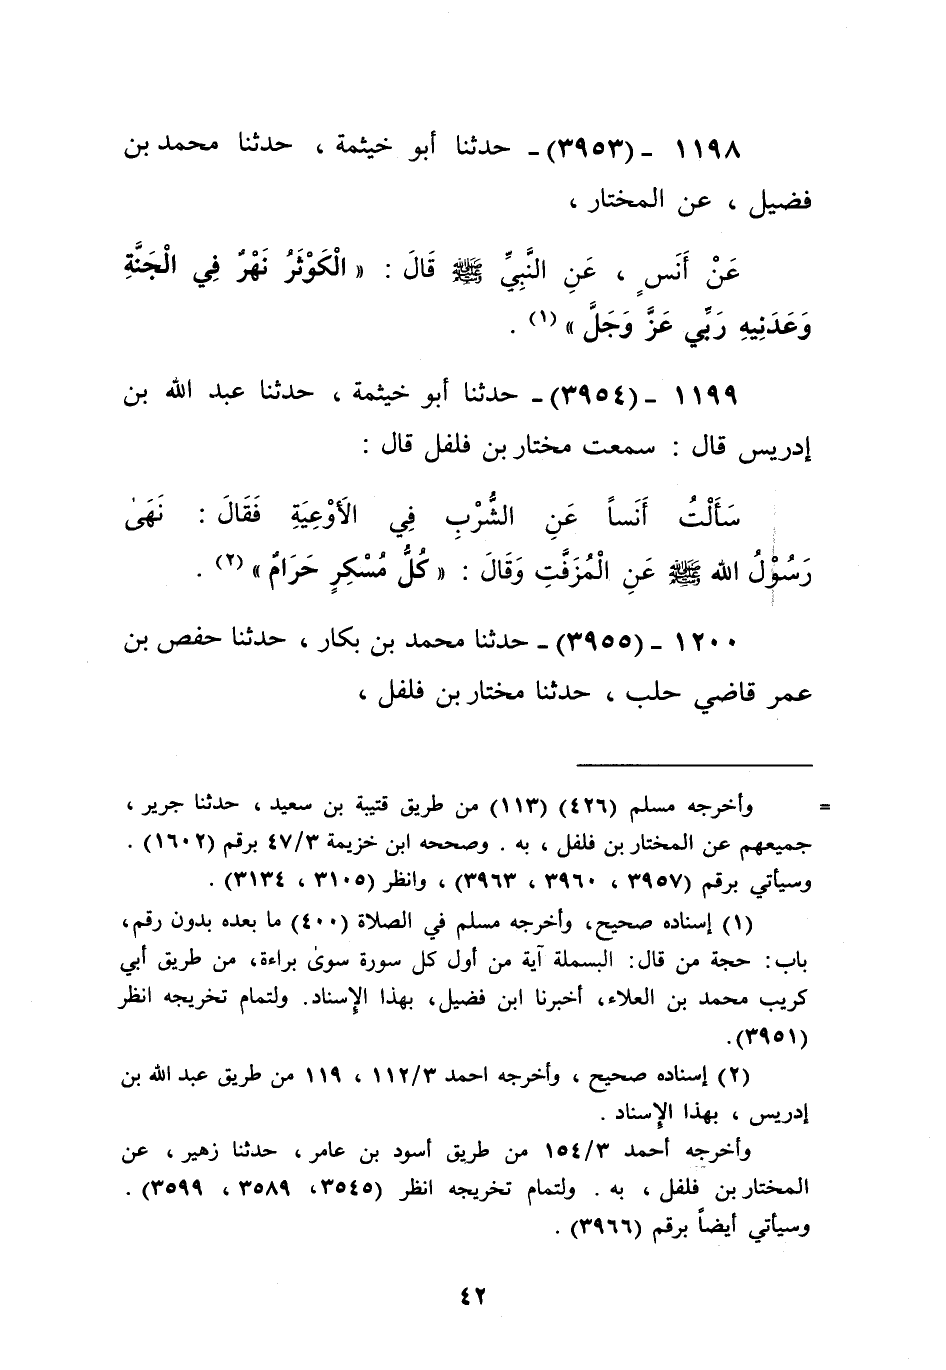 ١١٩٨ ـ (٣٩٥٣) ـ حدثنا أبو خيثمة ، حدثنا محمد بن
فضيل ، عن المختار ،
عَنْ أَنَسٍ ، عَنِ النَّبِيِّ ﷺ قَالَ : « الْكَوْثَرُ نَهْرٌ فِي الْجَنَّةِ
وَعَدَنِيهِ رَبِّي عَزَّ وَجَلَّ » (١) .
١١٩٩ ـ (٣٩٥٤) ـ حدثنا أبو خيثمة ، حدثنا عبد الله بن
إدريس قال : سمعت مختار بن فلفل قال :
سَأَلْتُ أَنَساً عَنِ الشُّرْبِ فِي الأَوْعِيَةِ فَقَالَ : نَهَىٰ
رَسُوْلُ الله ﷺ عَنِ الْمُزَفَّتِ وَقَالَ : « كُلُّ مُسْكِرٍ حَرَامٌ » (٢) .
١٢٠٠ ـ (٣٩٥٥) ـ حدثنا محمد بن بكار ، حدثنا حفص بن
عمر قاضي حلب ، حدثنا مختار بن فلفل ،
= وأخرجه مسلم (٤٢٦) (١١٣) من طريق قتيبة بن سعيد ، حدثنا جرير ،
جميعهم عن المختار بن فلفل ، به . وصححه ابن خزيمة ٤٧/٣ برقم (١٦٠٢) .
وسيأتي برقم (٣٩٥٧ ، ٣٩٦٠ ، ٣٩٦٣) ، وانظر (٣١٠٥ ، ٣١٣٤) .
(١) إسناده صحيح، وأخرجه مسلم في الصلاة (٤٠٠) ما بعده بدون رقم،
باب: حجة من قال: البسملة آية من أول كل سورة سوىٰ براءة، من طريق أبي
كريب محمد بن العلاء، أخبرنا ابن فضيل، بهذا الإسناد. ولتمام تخريجه انظر
(٣٩٥١).
(٢) إسناده صحيح ، وأخرجه احمد ١١٢/٣ ، ١١٩ من طريق عبد الله بن
إدريس ، بهذا الإسناد .
وأخرجه أحمد ١٥٤/٣ من طريق أسود بن عامر ، حدثنا زهير ، عن
المختار بن فلفل ، به . ولتمام تخريجه انظر (٣٥٤٥، ٣٥٨٩ ، ٣٥٩٩) .
وسيأتي أيضاً برقم (٣٩٦٦) .
٤٢